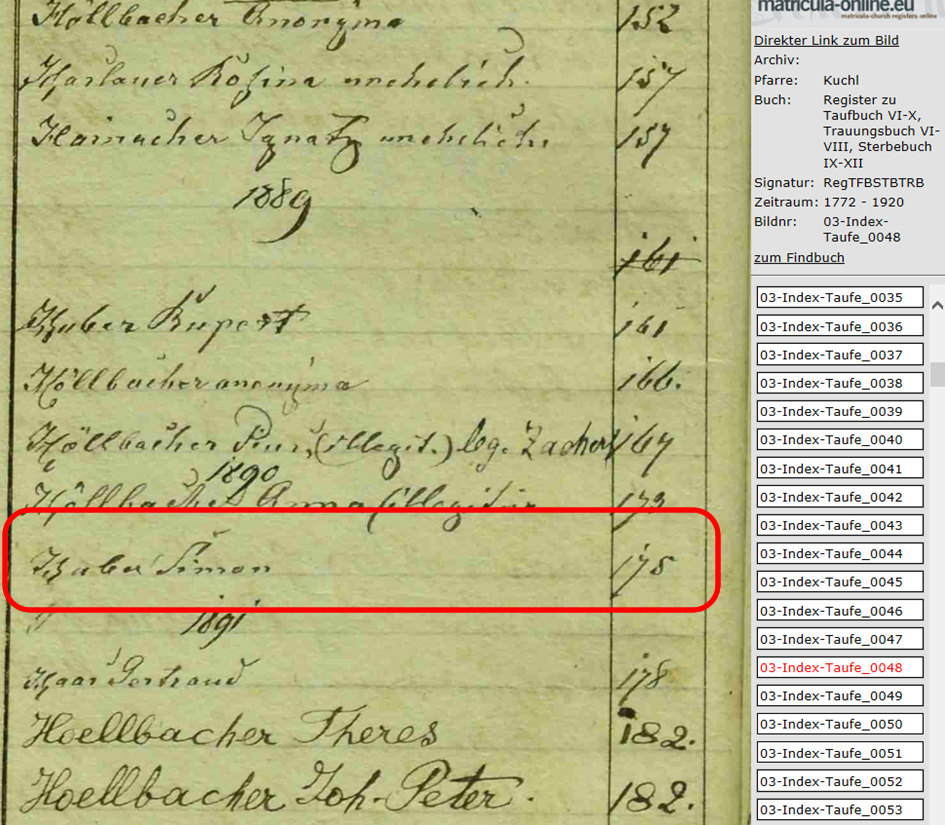 Höllbacher Anonyma 152
Haslauer Rosina unehelich. 157
Hainacher Ignatz unehelich 157
1889
161
Huber Rupert 161
Höllbacher anonyma 166.
Höllbacher (illegit.) leg. Zacherl 167
1890
Höllbacher Anna (illegitim 173
Huber Simon 175
1891
Haas Gertraud 178
Hoellbacher Theres 182.
Hoellbacher Joh. Peter. 182.
matricula-online.eu
matricula-church registers online
Direkter Link zum Bild
Archiv:
Pfarre: Kuchl
Buch: Register zu
Taufbuch VI-X,
Trauungsbuch VI-
VIII, Sterbebuch
IX-XII
Signatur: RegTFBSTBTRB
Zeitraum: 1772 - 1920
Bildnr: 03-Index-
Taufe_0048
zum Findbuch
03-Index-Taufe_0035
03-Index-Taufe_0036
03-Index-Taufe_0037
03-Index-Taufe_0038
03-Index-Taufe_0039
03-Index-Taufe_0040
03-Index-Taufe_0041
03-Index-Taufe_0042
03-Index-Taufe_0043
03-Index-Taufe_0044
03-Index-Taufe_0045
03-Index-Taufe_0046
03-Index-Taufe_0047
03-Index-Taufe_0048
03-Index-Taufe_0049
03-Index-Taufe_0050
03-Index-Taufe_0051
03-Index-Taufe_0052
03-Index-Taufe_0053